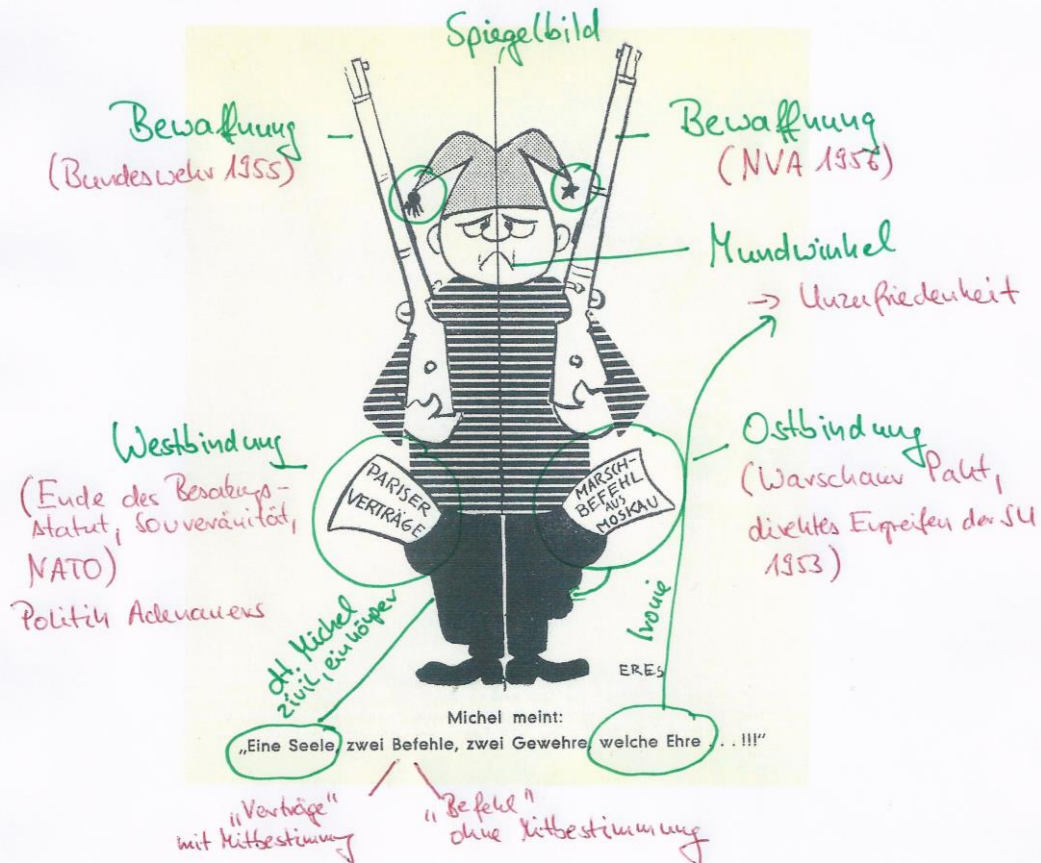 Spiegelbild
Bewaffnung
(Bundeswehr 1955)
Bewaffnung
(NVA 1956)
Mundwinkel
→ Unzufriedenheit
Westbindung
(Ende des Besatzungs-
statut, Souveränität,
NATO)
Politik Adenauers
PARISER
VERTRÄGE
MARSCH-
BEFEHL
AUS
MOSKAU
Ostbindung
(Warschauer Pakt,
direktes Eingreifen der SU
1953)
dt. Michel
zivil, ein Körper
Ironie
ERES
Michel meint:
„Eine Seele, zwei Befehle, zwei Gewehre, welche Ehre . . . !!!"
„Verträge"
mit Mitbestimmung
„Befehl"
ohne Mitbestimmung